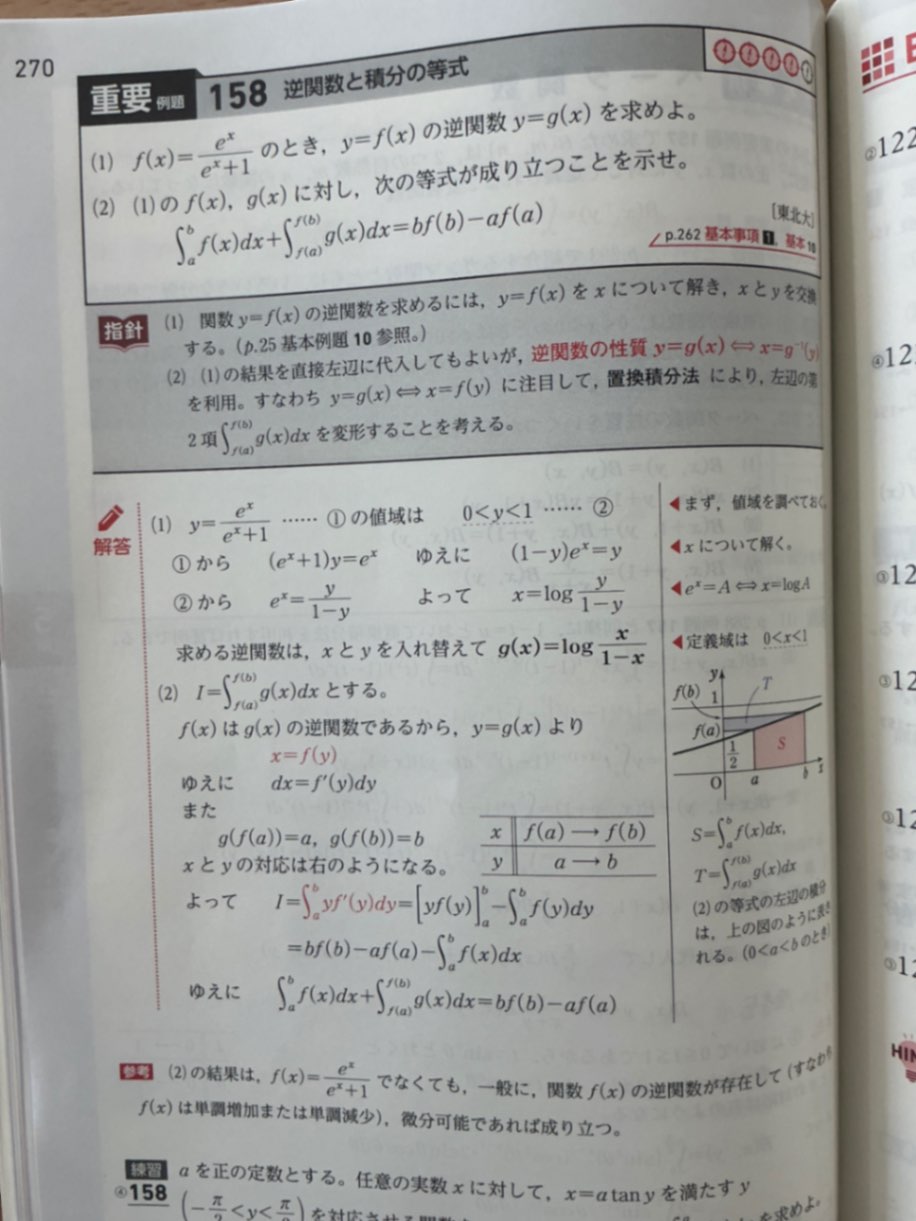 270
重要 例題 158 逆関数と積分の等式
(1) f(x)=e^x/(e^x+1) のとき，y=f(x) の逆関数 y=g(x) を求めよ。
(2) (1)の f(x)，g(x) に対し，次の等式が成り立つことを示せ。
∫_a^b f(x)dx+∫_{f(a)}^{f(b)} g(x)dx=bf(b)−af(a)
[東北大]
p.262 基本事項 1，基本 10
指針
(1) 関数 y=f(x) の逆関数を求めるには，y=f(x) を x について解き，x と y を交換
する。(p.25 基本例題 10 参照。)
(2) (1)の結果を直接左辺に代入してもよいが，逆関数の性質 y=g(x) ⟺ x=g⁻¹(y)
を利用。すなわち y=g(x) ⟺ x=f(y) に注目して，置換積分法 により，左辺の第
2項∫_{f(a)}^{f(b)} g(x)dx を変形することを考える。
解答
(1) y=e^x/(e^x+1) …… ① の値域は 0<y<1 …… ②
◀まず，値域を調べておく。
①から (e^x+1)y=e^x ゆえに (1−y)e^x=y
◀x について解く。
②から e^x=y/(1−y) よって x=log y/(1−y)
◀e^x=A ⟺ x=logA
求める逆関数は，x と y を入れ替えて g(x)=log x/(1−x)
◀定義域は 0<x<1
(2) I=∫_{f(a)}^{f(b)} g(x)dx とする。
f(x) は g(x) の逆関数であるから，y=g(x) より
x=f(y)
ゆえに dx=f′(y)dy
また
g(f(a))=a，g(f(b))=b
x と y の対応は右のようになる。
x f(a) ⟶ f(b)
y a ⟶ b
よって I=∫_a^b yf′(y)dy=[yf(y)]_a^b−∫_a^b f(y)dy
=bf(b)−af(a)−∫_a^b f(x)dx
ゆえに ∫_a^b f(x)dx+∫_{f(a)}^{f(b)} g(x)dx=bf(b)−af(a)
y
f(b) 1 T
f(a)
1/2 S
O a b x
S=∫_a^b f(x)dx,
T=∫_{f(a)}^{f(b)} g(x)dx
(2)の等式の左辺の積分
は，上の図のように表さ
れる。(0<a<b のとき)
参考 (2)の結果は，f(x)=e^x/(e^x+1) でなくても，一般に，関数 f(x) の逆関数が存在して (すなわち
f(x) は単調増加または単調減少)，微分可能であれば成り立つ。
練習 a を正の定数とする。任意の実数 x に対して，x=a tan y を満たす y
④158 (−π/2<y<π/2) を対応させる関数
を求めよ。
②122
④12
③12
③12
③12
③1
HIN